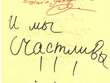 И мы
счастливы
! ! !